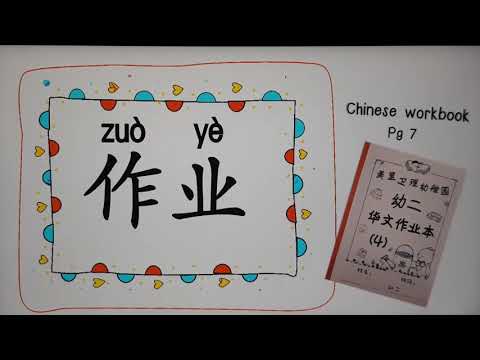 zuò yè
作业
Chinese workbook
Pg 7
美里卫理幼稚园
幼二
华文作业本
(4)